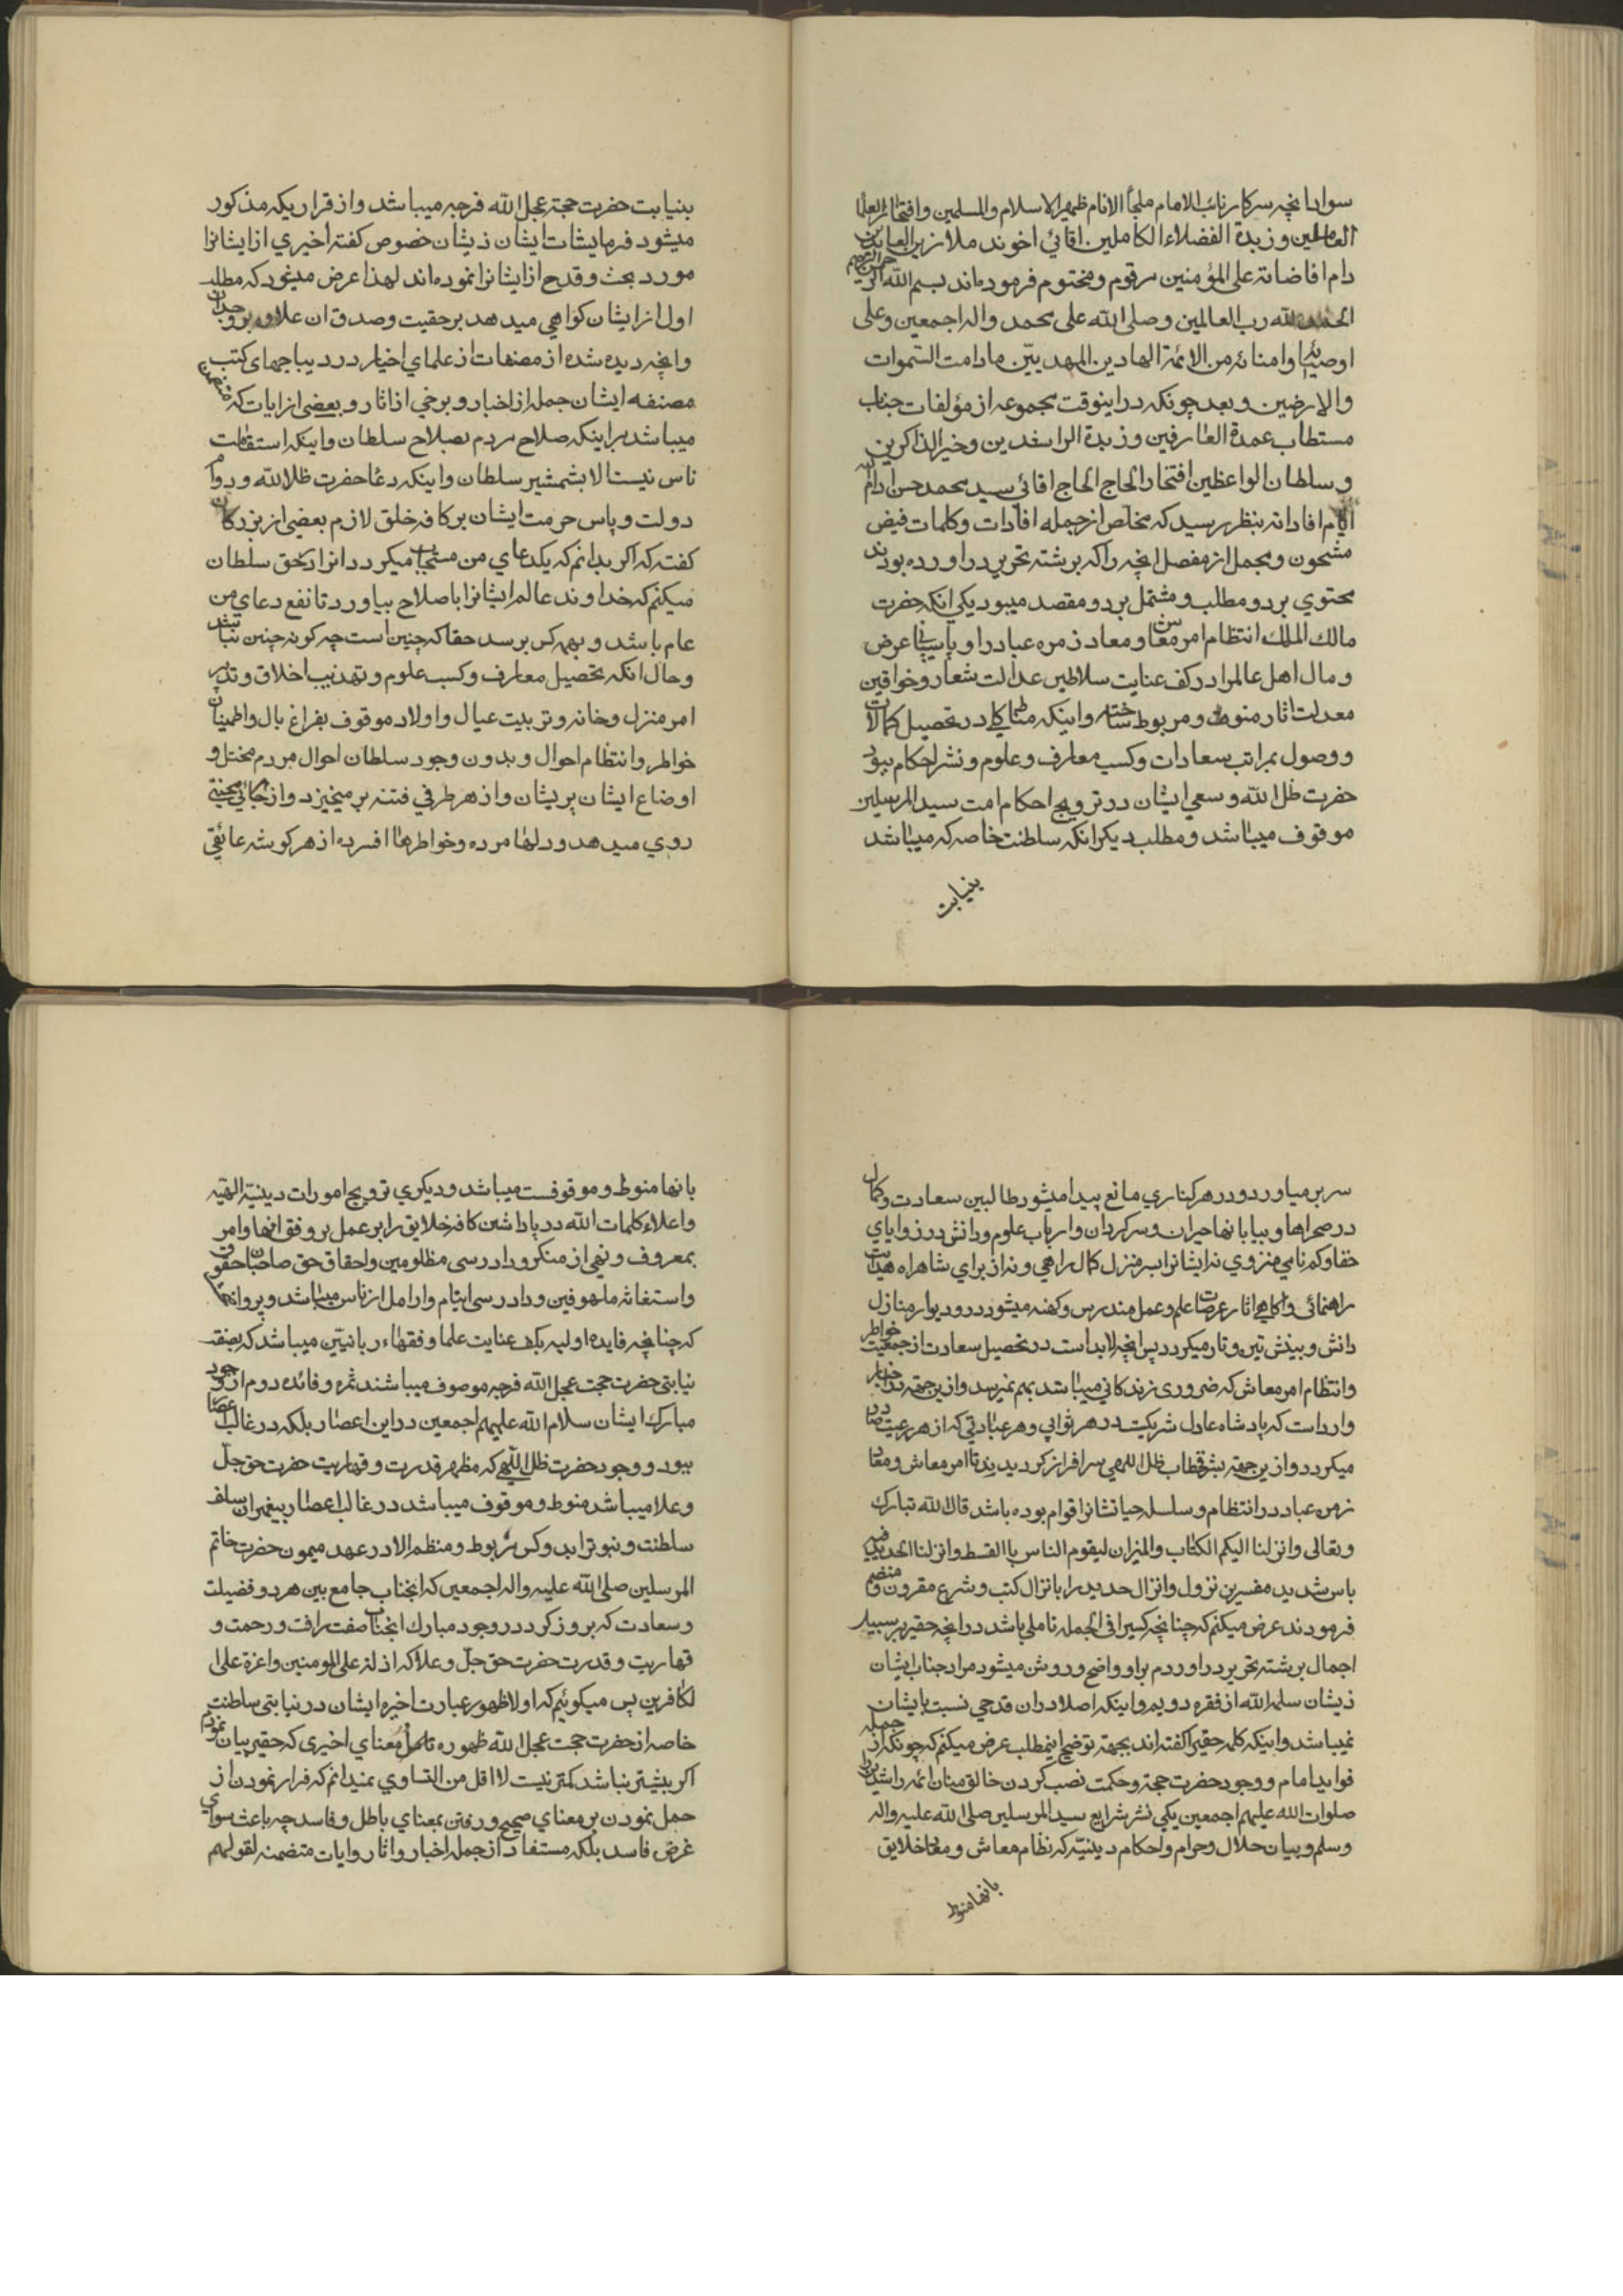 سواد انچه سركار نائب الامام ملجأ الانام ظهير الاسلام والمسلمين وافتخار العلماء
العاملين وزبدة الفضلاء الكاملين اقائي اخوند ملا زين العابدين
دام افاضاته على المؤمنين مرقوم ومختوم فرموده اند بسم الله الرحمن الرحيم
الحمد لله رب العالمين وصلى الله على محمد واله اجمعين وعلى
اوصيائه وامنائه من الائمة الهادين المهديّين مادامت السّموات
والارضين وبعد چونكه دراينوقت مجموعه از مؤلفات جناب
مستطاب عمدة العارفين وزبدة الراشدين وخير الذاكرين
وسلطان الواعظين افتخار الحاج الحاج اقائي سيد محمد حسن ادام الله
ايام افاداته بنظر رسيد كه مخلص از جمله افادات وكلمات فيض
مشحون ومجمل از مفصل انچه را كه برشته تحرير دراورده بودند
محتوي بر دو مطلب ومشتمل بر دو مقصد ميبود يكي انكه حضرت
مالك الملك انتظام امر معاش ومعاد زمره عباد را و عرض
ومال اهل عالم را در كف عنايت سلاطين عدالت شعار وخواقين
معدلت اثار منوط ومربوط ساخته واينكه در تحصيل كمالات
ووصول بمراتب سعادات وكسب معارف وعلوم ونشر احكام بوجود
حضرت ظل الله وسعي ايشان در ترويج احكام امت سيد المرسلين
موقوف ميباشد ومطلب ديكر انكه سلطنت خاصه كه ميباشد
بنيابت
بنيابت حضرت حجة عجل الله فرجه ميباشد واز قراريكه مذكور
ميشود فرمايشات ايشان ذيشان خصوص كفته اخيري از ايشانرا
مورد بحث وقدح از ايشانرا نموده اند لهذا عرض مينمود كه مطلب
اول از ايشان كواهي ميدهد بر حقيت وصدق ان علاوه بر وجدان
وانچه ديده شده از مصنفات از علماي اخيار در ديباجهاى كتب
مصنفه ايشان جمله از اخبار وبرخي از اثار وبعضى از ايات كه متضمن
ميباشد براينكه صلاح مردم بصلاح سلطان واينكه استقامت
ناس نيست الا بشمشير سلطان واينكه دعا حضرت ظل الله ودوام
دولت وپاس حرمت ايشان بر كافه خلق لازم بعضي از بزركان
كفته كه اكر بدانم كه يكدعاي من مستجاب ميكردد انرا در حق سلطان
ميكنم كه خداوند عالم ايشانرا باصلاح بياورد تا نفع دعاي من
عام باشد و بهمه كس برسد حقا كه چنين است چه كونه چنين نباشد
وحال انكه تحصيل معارف وكسب علوم وتهذيب اخلاق وتدبير
امر منزل وخانه وتربيت عيال واولاد موقوف بفراغ بال واطمينان
خواطر وانتظام احوال وبدون وجود سلطان احوال مردم مختل و
اوضاع ايشان پريشان واز هر طرفي فتنه بر ميخيزد واز هر جائي محنتي
روي ميدهد ودلها مرده وخواطرها افسرده از هر كوشه عائقي
سر بر مياورد ودر هر كناري مانع پيدا ميشود طالبين سعادت وكمال
در صحراها وبيابانها حيران وسركردان وارباب علوم ودانش در زواياي
خفا وكم نامي منزوي نه ايشانرا بسر منزل كمال راهي ونه از براي شاهراه هدايت
راهنمائى واكاهي اثار عرصات علم وعمل مندرس وكهنه ميشود در وديوار منازل
دانش وبينش تيره وتار ميكردد پس انچه لابد است در تحصيل سعادت از جمعيت خواطر
وانتظام امر معاش كه ضروري زندكاني ميباشد بهم نميرسد وازين جهته در اخبار
وارد است كه پادشاه عادل شريكست در هر ثوابي وهر عبادتي كه از هر رعيت صادر
ميكردد وازين جهته بشرف خطاب ظل اللهي سرافراز كرديدند تا امر معاش ومعاد
زمره عباد در انتظام وسلسله حياتشانرا قوام بوده باشد قال الله تبارك
وتعالى وانزلنا اليكم الكتاب والميزان ليقوم الناس باالقسط وانزلنا الحديد فيه
باس شديد مفسرين نزول وانزال حديد را بانزال كتب وشرع مقرون ومنضم
فرمودند عرض ميكنم كه چنانچه كسيرا في الجمله تاملي باشد در انچه حقير بر سبيل
اجمال برشته تحرير دراوردم براو واضح وروشن ميشود مراد جناب ايشان
ذيشان سلمه الله از فقره دويم واينكه اصلا دران قدحي نسبت بايشان
نميباشد واينكه كلمه حقير كفته اند بجهته توضيح اينمطلب عرض ميكنم كه چونكه از جمله
فوايد امام ووجود حضرت حجة وحكمت نصب كردن خالق منان ائمه راشدين
صلوات الله عليهم اجمعين يكي نشر شرايع سيد المرسلين صلى الله عليه واله
وسلم وبيان حلال وحرام واحكام دينيّه كه نظام معاش ومعاد خلايق
بانها منوط
بانها منوط وموقوفست ميباشد وديكري ترويج امورات دينيّه الهيّه
واعلاء كلمات الله در پا داشتن كافه خلايق را بر عمل بر وفق انها وامر
بمعروف ونهي از منكر ودادرسى مظلومين واحقاق حق صاحبان حقوق
واستغاثه ملهوفين ودادرسى ايتام وارامل از ناس ميباشد
كه چنانچه فايده اوليه بكف عنايت علما وفقهاء ربانيّين ميباشد كه بصفت
نيابتي حضرت حجت عجل الله فرجه موصوف ميباشند ثمره وفائده دوم از وجود
مبارك ايشان سلام الله عليهم اجمعين دراين اعصار بلكه در غالب اعصار
بوجود حضرت ظل اللّهي كه مظهر قدرت وقهاريت حضرت حق جلّ
وعلا ميباشد منوط وموقوف ميباشد در غالب اعصار پيغمبران سلف
سلطنت ونبوت مربوط ومنظم الا در عهد ميمون حضرت خاتم
المرسلين صلى الله عليه واله اجمعين كه انجناب جامع بين هر دو فضيلت
وسعادت كه بروز كرد در وجود مبارك انجناب صفت رافت ورحمت و
قهاريت وقدرت حضرت حق جلّ وعلا كه اذلة على المومنين واعزة على ا
لكافرين پس ميكوئيم كه اولا ظهور عبارت اخيره ايشان در نيابتي سلطنت
خاصه از حضرت حجت عجل الله ظهوره معناي اخيرى كه حقير بيان نمودم
اكر بيشتر نباشد كمتر نيست لااقل من التساوي نميدانم كه فرار نمودن از
حمل نمودن بر معناي صحيح ورفتن بمعناي باطل وفاسد چه باعث سواي
غرض فاسد بلكه مستفاد از جمله اخبار واثار وايات متضمنه لقولهم